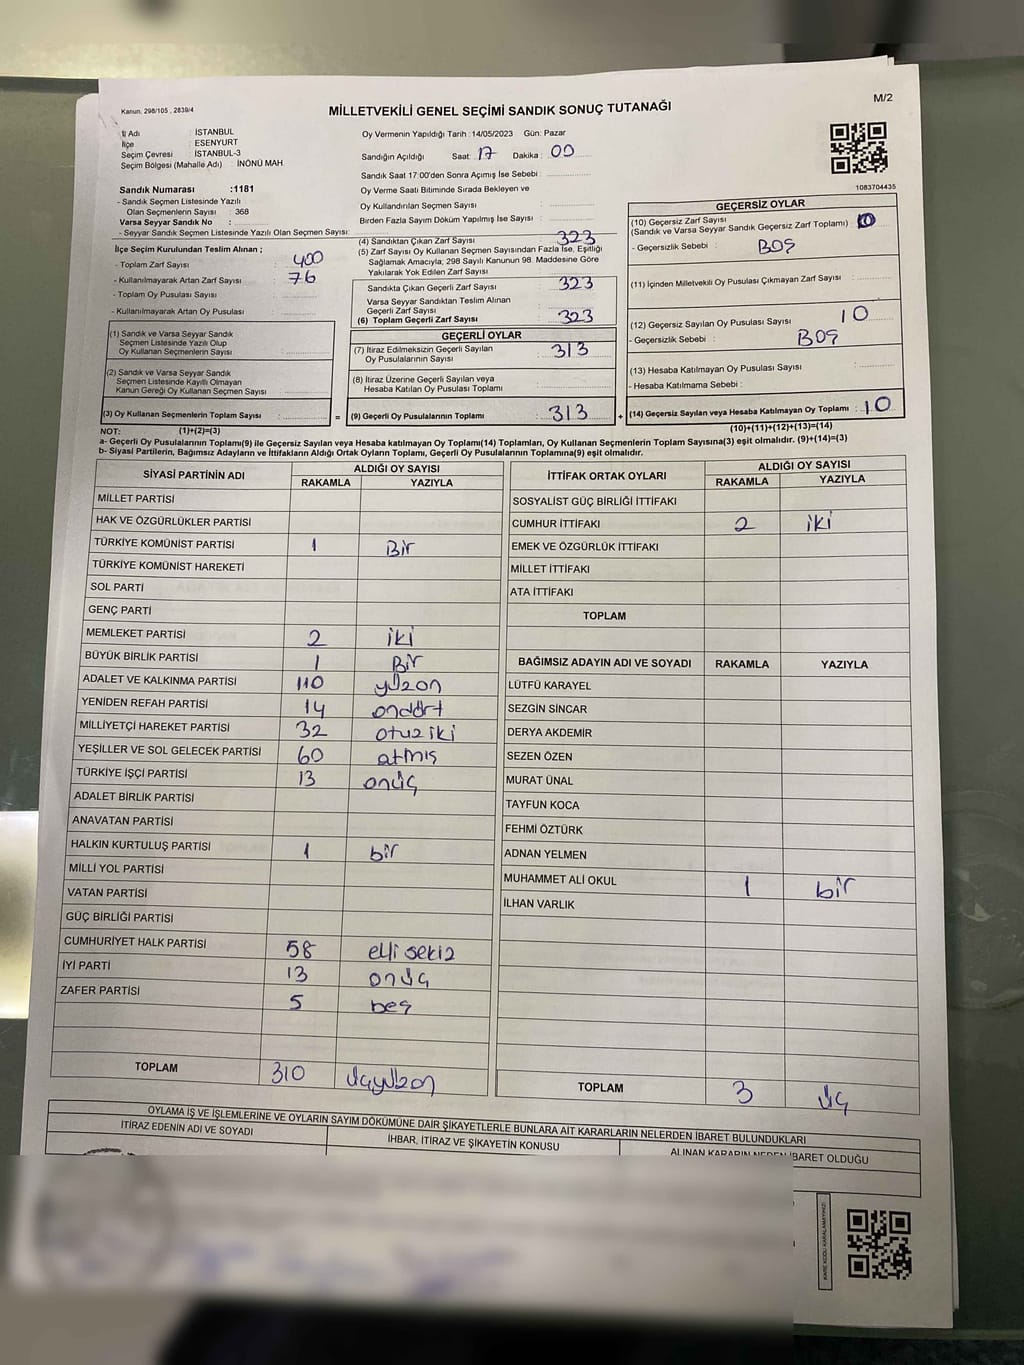 Kanun, 298/105 , 2839/4
MİLLETVEKİLİ GENEL SEÇİMİ SANDIK SONUÇ TUTANAĞI
M/2
İl Adı : İSTANBUL
İlçe : ESENYURT
Seçim Çevresi : İSTANBUL-3
Seçim Bölgesi (Mahalle Adı) : İNÖNÜ MAH
Sandık Numarası :1181
- Sandık Seçmen Listesinde Yazılı
Olan Seçmenlerin Sayısı : 368
Varsa Seyyar Sandık No :
- Seyyar Sandık Seçmen Listesinde Yazılı Olan Seçmen Sayısı:
İlçe Seçim Kurulundan Teslim Alınan ;
- Toplam Zarf Sayısı : 400
- Kullanılmayarak Artan Zarf Sayısı : 76
- Toplam Oy Pusulası Sayısı :
- Kullanılmayarak Artan Oy Pusulası :
(1) Sandık ve Varsa Seyyar Sandık
Seçmen Listesinde Yazılı Olup
Oy Kullanan Seçmenlerin Sayısı :
(2) Sandık ve Varsa Seyyar Sandık
Seçmen Listesinde Kayıtlı Olmayan
Kanun Gereği Oy Kullanan Seçmen Sayısı :
(3) Oy Kullanan Seçmenlerin Toplam Sayısı :
Oy Vermenin Yapıldığı Tarih :14/05/2023 Gün: Pazar
Sandığın Açıldığı Saat: 17 Dakika : 00
Sandık Saat 17:00'den Sonra Açımış İse Sebebi :
Oy Verme Saati Bitiminde Sırada Bekleyen ve
Oy Kullandırılan Seçmen Sayısı :
Birden Fazla Sayım Döküm Yapılmış İse Sayısı :
(4) Sandıktan Çıkan Zarf Sayısı : 323
(5) Zarf Sayısı Oy Kullanan Seçmen Sayısından Fazla İse, Eşitliği
Sağlamak Amacıyla; 298 Sayılı Kanunun 98. Maddesine Göre
Yakılarak Yok Edilen Zarf Sayısı :
Sandıkta Çıkan Geçerli Zarf Sayısı : 323
Varsa Seyyar Sandıktan Teslim Alınan
Geçerli Zarf Sayısı :
(6) Toplam Geçerli Zarf Sayısı : 323
GEÇERLİ OYLAR
(7) İtiraz Edilmeksizin Geçerli Sayılan
Oy Pusulalarının Sayısı : 313
(8) İtiraz Üzerine Geçerli Sayılan veya
Hesaba Katılan Oy Pusulası Toplamı :
= (9) Geçerli Oy Pusulalarının Toplamı : 313
1083704435
GEÇERSİZ OYLAR
(10) Geçersiz Zarf Sayısı
(Sandık ve Varsa Seyyar Sandık Geçersiz Zarf Toplamı) :
- Geçersizlik Sebebi : BOŞ
(11) İçinden Milletvekili Oy Pusulası Çıkmayan Zarf Sayısı :
(12) Geçersiz Sayılan Oy Pusulası Sayısı : 10
- Geçersizlik Sebebi : BOŞ
(13) Hesaba Katılmayan Oy Pusulası Sayısı :
- Hesaba Katılmama Sebebi :
+ (14) Geçersiz Sayılan veya Hesaba Katılmayan Oy Toplamı : 10
NOT: (1)+(2)=(3)
(10)+(11)+(12)+(13)=(14)
a- Geçerli Oy Pusulalarının Toplamı(9) ile Geçersiz Sayılan veya Hesaba katılmayan Oy Toplamı(14) Toplamları, Oy Kullanan Seçmenlerin Toplam Sayısına(3) eşit olmalıdır. (9)+(14)=(3)
b- Siyasi Partilerin, Bağımsız Adayların ve İttifakların Aldığı Ortak Oyların Toplamı, Geçerli Oy Pusulalarının Toplamına(9) eşit olmalıdır.
SİYASİ PARTİNİN ADI
ALDIĞI OY SAYISI
RAKAMLA YAZIYLA
MİLLET PARTİSİ
HAK VE ÖZGÜRLÜKLER PARTİSİ
TÜRKİYE KOMÜNİST PARTİSİ 1 Bir
TÜRKİYE KOMÜNİST HAREKETİ
SOL PARTİ
GENÇ PARTİ
MEMLEKET PARTİSİ 2 iki
BÜYÜK BİRLİK PARTİSİ 1 Bir
ADALET VE KALKINMA PARTİSİ 110 yüzon
YENİDEN REFAH PARTİSİ 14 ondört
MİLLİYETÇİ HAREKET PARTİSİ 32 otuz iki
YEŞİLLER VE SOL GELECEK PARTİSİ 60 atmış
TÜRKİYE İŞÇİ PARTİSİ 13 onüç
ADALET BİRLİK PARTİSİ
ANAVATAN PARTİSİ
HALKIN KURTULUŞ PARTİSİ 1 bir
MİLLİ YOL PARTİSİ
VATAN PARTİSİ
GÜÇ BİRLİĞİ PARTİSİ
CUMHURİYET HALK PARTİSİ 58 elli sekiz
İYİ PARTİ 13 onüç
ZAFER PARTİSİ 5 beş
TOPLAM 310 üçyüzon
İTTİFAK ORTAK OYLARI
ALDIĞI OY SAYISI
RAKAMLA YAZIYLA
SOSYALİST GÜÇ BİRLİĞİ İTTİFAKI
CUMHUR İTTİFAKI 2 iki
EMEK VE ÖZGÜRLÜK İTTİFAKI
MİLLET İTTİFAKI
ATA İTTİFAKI
TOPLAM
BAĞIMSIZ ADAYIN ADI VE SOYADI RAKAMLA YAZIYLA
LÜTFÜ KARAYEL
SEZGİN SİNCAR
DERYA AKDEMİR
SEZEN ÖZEN
MURAT ÜNAL
TAYFUN KOCA
FEHMİ ÖZTÜRK
ADNAN YELMEN
MUHAMMET ALİ OKUL 1 bir
İLHAN VARLIK
TOPLAM 3 üç
OYLAMA İŞ VE İŞLEMLERİNE VE OYLARIN SAYIM DÖKÜMÜNE DAİR ŞİKAYETLERLE BUNLARA AİT KARARLARIN NELERDEN İBARET BULUNDUKLARI
İTİRAZ EDENİN ADI VE SOYADI
İHBAR, İTİRAZ VE ŞİKAYETİN KONUSU
ALINAN KARARIN NEDEN İBARET OLDUĞU
KARE KODU KARALAMAYINIZ!